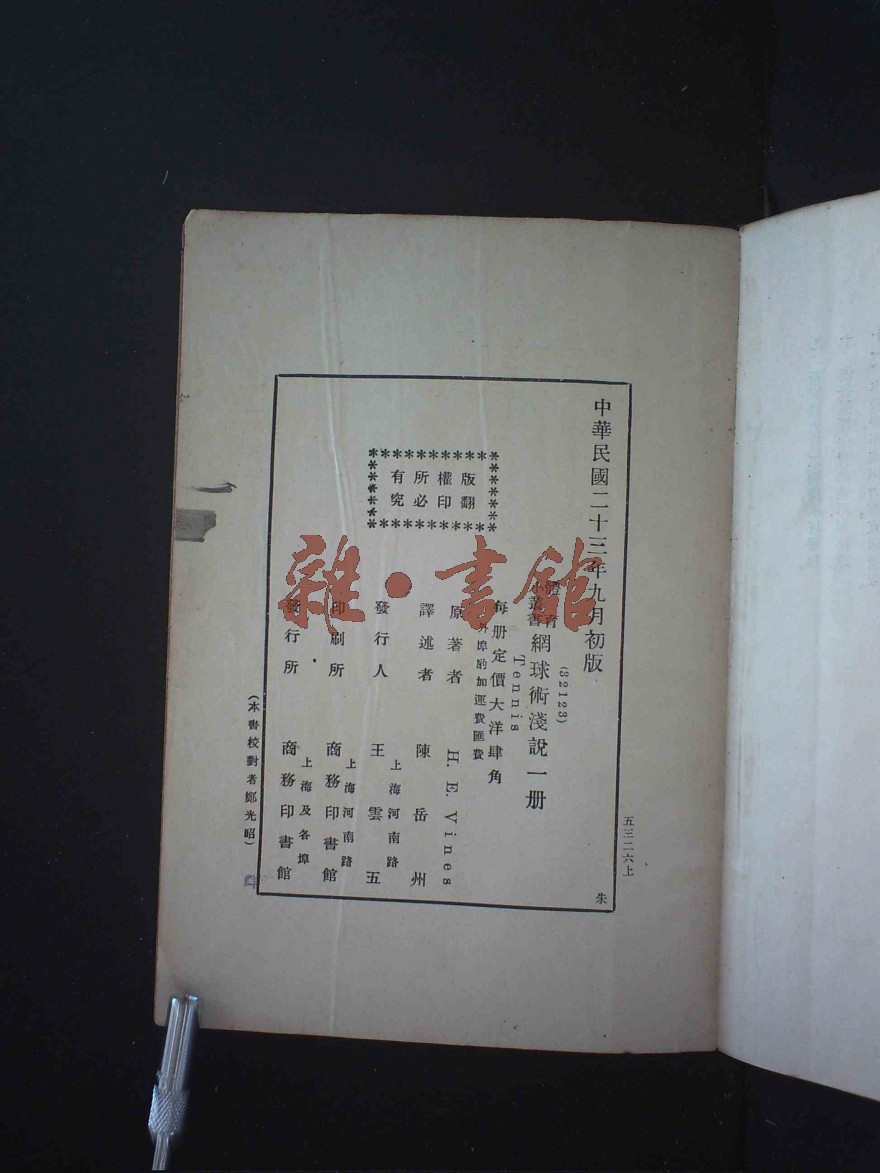 中華民國二十三年九月初版
(32123)
體育
小叢書
網球術淺說一册
Tennis
每册定價大洋肆角
外埠酌加運費匯費
版權所有
翻印必究
原著者 H. E. Vines
譯述者 陳岳州
發行人 王雲五
上海河南路
印刷所 商務印書館
上海河南路
發行所 商務印書館
上海及各埠
(本書校對者鄭光昭)
五三二六上
朱
雜·書館